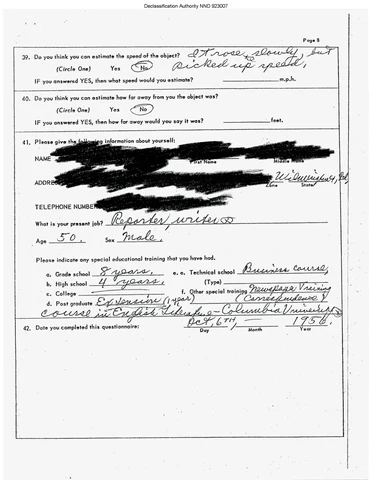 Declassification Authority NND 923007
Page 8
39. Do you think you can estimate the speed of the object? It rose slowly, but
(Circle One) Yes No picked up speed.
IF you answered YES, then what speed would you estimate? m.p.h.
40. Do you think you can estimate how far away from you the object was?
(Circle One) Yes No
IF you answered YES, then how far away would you say it was? feet.
41. Please give the following information about yourself:
NAME
First Name Middle Name
ADDRESS Wilmington,
Zone State
TELEPHONE NUMBER
What is your present job? Reporter, writer
Age 50. Sex Male.
Please indicate any special educational training that you have had.
a. Grade school 8 years, e. e. Technical school Business course,
b. High school 4 years, (Type)
c. College f. Other special training Newspaper Training
d. Post graduate Extension (1 year) (Correspondence)
course in English Literature - Columbia University
42. Date you completed this questionnaire: Oct, 6TH, 1956.
Day Month Year